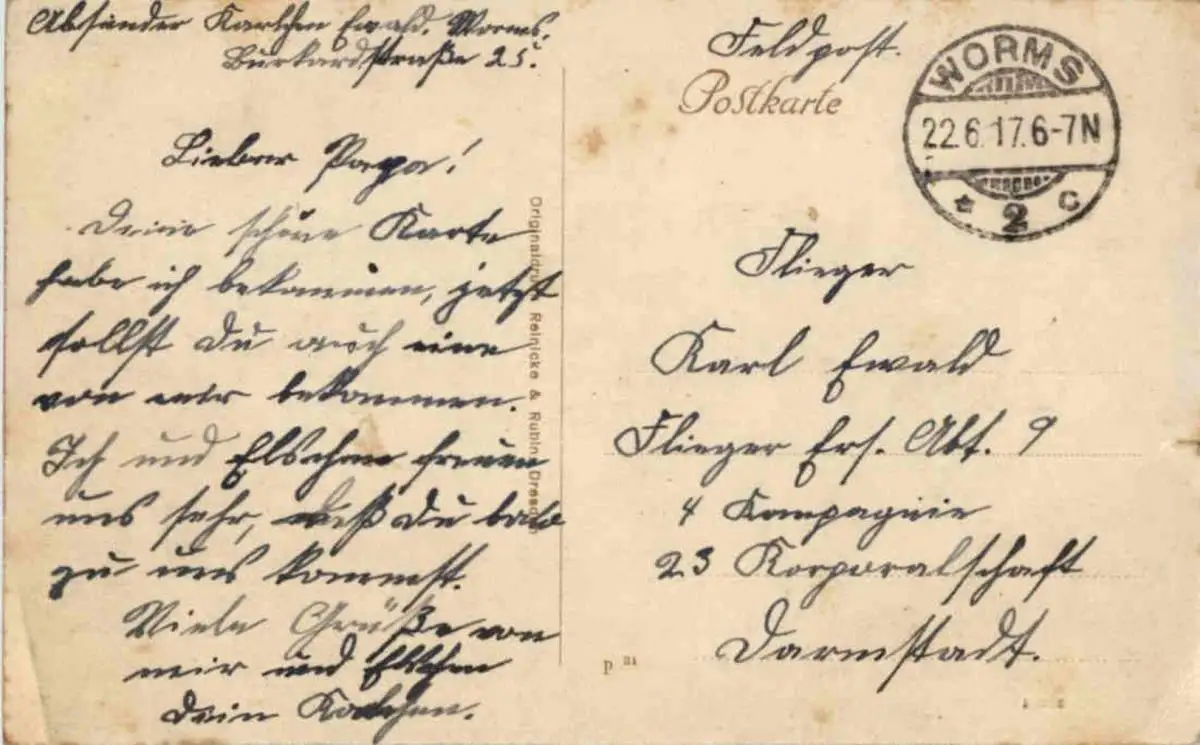 Absender Karlchen Ewald. Worms.
Burkardstraße 25.
Lieber Papa!
Deine schöne Karte
habe ich bekommen, jetzt
sollst Du auch eine
von mir bekommen.
Ich und Elschen freuen
uns sehr, daß Du bald
zu uns kommst.
Viele Grüße von
mir und Elschen
Dein Karlchen.
Originaldruck Reinicke & Rubin, Dresden
Feldpost.
Postkarte
WORMS
22.6.17.6-7N
* 2 c
Flieger
Karl Ewald
Flieger Ers. Abt. 9
4 Kompagnie
23 Korporalschaft
Darmstadt.
P 31